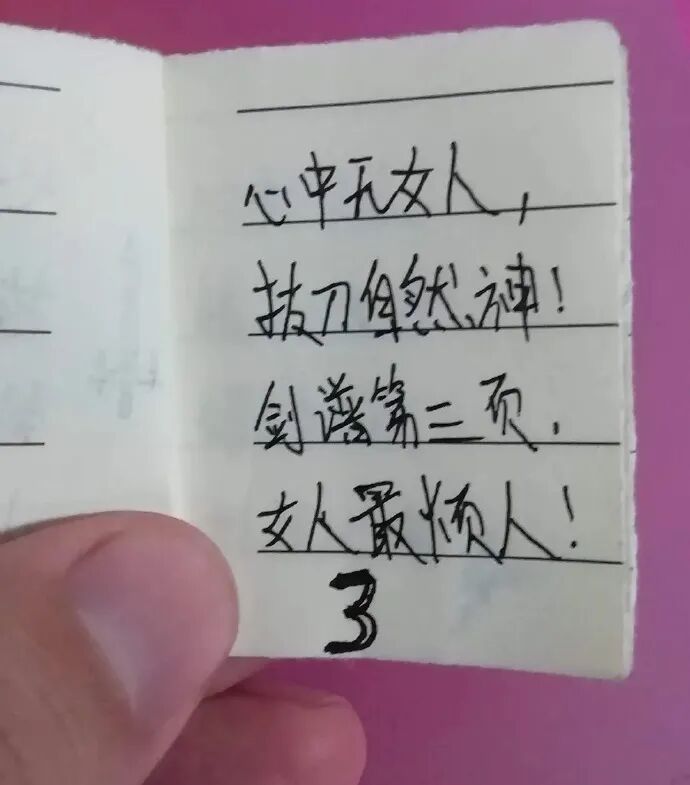 心中无女人,
拔刀自然神!
剑谱第三页.
女人最烦人!
3